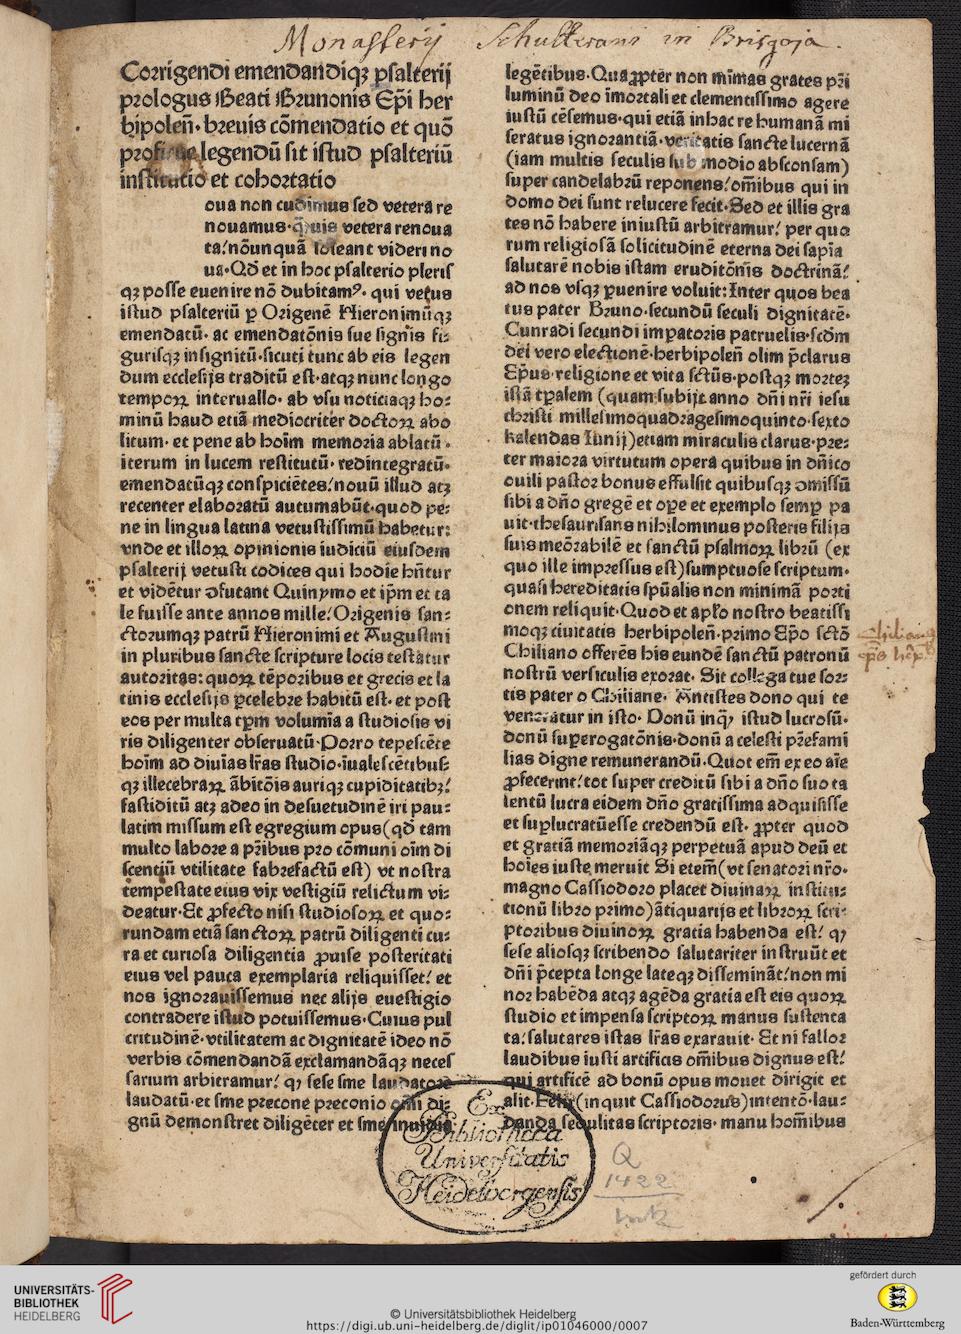 Monasterij Schutterani in Brisgoja.
Corrigendi emendandiqꝫ psalterij
prologus Beati Brunonis Ep̄i her
bipoleñ· breuis cōmendatio et quō
legendū sit istud psalteriū
institutio et cohortatio
oua non cudimus sed vetera re
nouamus· vetera renoua
ta: nōunquā soleant videri no
ua· Qđ et in hoc psalterio pleris
qꝫ posse euenire nō dubitamꝰ· qui vetus
istud psalteriū ꝑ Origenē Hieronimūqꝫ
emendatū· ac emendatōnis sue signis fi-
gurisqꝫ insignitū· sicuti tunc ab eis legen
dum ecclesijs traditū est· atqꝫ nunc longo
temporꝝ interuallo· ab vsu noticiaqꝫ ho-
minū haud etiā mediocriter doctorꝝ abo
litum· et pene ab hoīm memoria ablatū·
iterum in lucem restitutū· redintegratū·
emendatūqꝫ conspiciētes: nouū illud atꝫ
recenter elaboratū autumabūt· quod pe-
ne in lingua latina vetustissimū habetur:
vnde et illoꝝ opinionis iudiciū eiusdem
psalterij vetusti codices qui hodie hñtur
et vidētur ꝯfutant Quinymo et ip̄m et ta
le fuisse ante annos mille: Origenis san-
ctorumqꝫ patrū Hieronimi et Augustini
in pluribus sancte scripture locis testātur
autoritas: quoꝝ tēporibus et grecis et la
tinis ecclesijs ꝑcelebre habitū est· et post
eos per multa tꝑm volumīa a studiosis vi
ris diligenter obseruatū· Porro tepescēte
hoīm ad diuīas lr̄as studio· īualescētibus-
qꝫ illecebraꝝ ābitōis auriqꝫ cupiditatibꝫ:
fastiditū atꝫ adeo in desuetudinē iri pau-
latim missum est egregium opus (qđ tam
multo labore a pr̄ibus pro cōmuni oīm di
scentiū vtilitate fabrefactū est) vt nostra
tempestate eius vix vestigiū relictum vi-
deatur· Et ꝓfecto nisi studiosoꝝ et quo-
rundam etiā sanctorꝝ patrū diligenti cu-
ra et curiosa diligentia ꝓuise posteritati
eius vel pauca exemplaria reliquisset: et
nos ignorauissemus nec alijs euestigio
contradere istud potuissemus· Cuius pul
critudinē· vtilitatem ac dignitatē ideo nō
verbis cōmendandā exclamandāqꝫ neces
sarium arbitramur: qꝫ sese sine laudatore
laudatū· et sine precone preconio oīni di-
gnū demonstret diligēter et sine inuidia
legētibus· Quaꝓpter non mīmas grates pr̄i
luminū deo īmortali et clementissimo agere
iustū cēsemus· qui etiā in hac re humanā mi
seratus ignorantiā· veritatis sancte lucernā
(iam multis seculis sub modio absconsam)
super candelabrū reponens: om̄ibus qui in
domo dei sunt relucere fecit· Sed et illis gra
tes nō habere iniustū arbitramur: per quo
rum religiosā solicitudinē eterna dei sapīa
salutarē nobis istam eruditōnis doctrinā:
ad nos vsqꝫ ꝑuenire voluit: Inter quos bea
tus pater Bruno· secundū seculi dignitatē·
Cunradi secundi imꝑatoris patruelis· scđm
dei vero electionē· herbipoleñ olim p̄clarus
Ep̄us· religione et vita sctūs· postqꝫ mortez
istā tꝑalem (quam subijt anno dn̄i nr̄i iesu
christi millesimoquadragesimoquinto· sexto
kalendas Iunij) etiam miraculis clarus· pre-
ter maiora virtutum opera quibus in dn̄ico
ouili pastor bonus effulsit quibusqꝫ ꝯmissū
sibi a dn̄o gregē et ope et exemplo semꝑ pa
uit· thesaurisans nihilominus posteris filijs
suis meōrabilē et sanctū psalmoꝝ librū (ex
quo ille impressus est) sumptuose scriptum·
quasi hereditatis spūalis non minimā porti
onem reliquit· Quod et apl̄o nostro beatissi
moqꝫ ciuitatis herbipoleñ· primo Ep̄o sctō
Chiliano offerēs his eundē sanctū patronū
nostrū versiculis exorat· Sit collega tue sor-
tis pater o Chiliane· Antistes dono qui te
veneratur in isto· Donū inqꝫ istud lucrosū·
donū suꝑerogatōnis· donū a celesti pr̄efami
lias digne remunerandū· Quot em̄ ex eo aīe
ꝓfecerint: tot super creditū sibi a dn̄o suo ta
lentū lucra eidem dn̄o gratissima adquisisse
et suꝑlucratū esse credendū est· ꝓpter quod
et gratiā memoriāqꝫ perpetuā apud deū et
hoīes iuste meruit Si etem̄ (vt senatori nr̄o·
magno Cassiodoro placet diuinaꝝ institu-
tionū libro primo) ātiquarijs et libroꝝ scri-
ptoribus diuinoꝝ gratia habenda est: qꝫ
sese aliosqꝫ scribendo salutariter instruūt et
dn̄i p̄cepta longe lateqꝫ dissemināt: non mi
nor habēda atqꝫ agēda gratia est eis quoꝝ
studio et impensa scriptoꝝ manus sustenta
ta: salutares istas lr̄as exarauit· Et ni fallor
laudibus iusti artificis om̄ibus dignus est:
qui artificē ad bonū opus mouet dirigit et
alit· Felix (inquit Cassiodorus) intentō· lau-
danda sedulitas scriptoris· manu hom̄ibus
Ex
Bibliotheca
Universitatis
Heidelbergensis
Q
1422
UNIVERSITÄTS-
BIBLIOTHEK
HEIDELBERG
© Universitätsbibliothek Heidelberg
https://digi.ub.uni-heidelberg.de/diglit/ip01046000/0007
gefördert durch
Baden-Württemberg